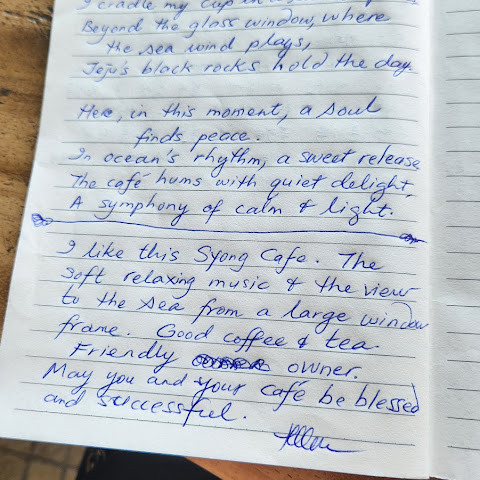 I cradle my cup in
Beyond the glass window, where
the sea wind plays,
Jeju's black rocks hold the day
Here, in this moment, a soul
finds peace.
In ocean's rhythm, a sweet release
The café hums with quiet delight,
A symphony of calm & light.
I like this Syong Cafe. The
soft relaxing music & the view
to the sea from a large window
frame. Good coffee & tea.
Friendly owner.
May you and your café be blessed
and successful.